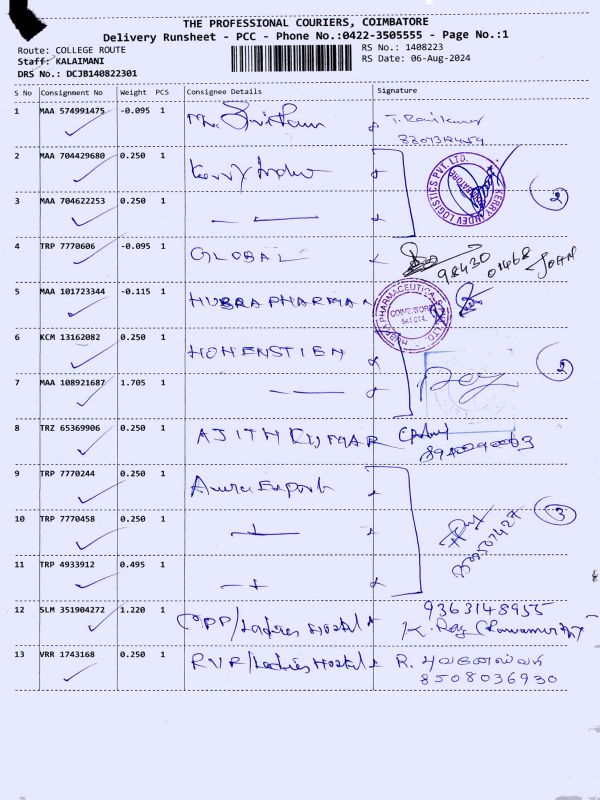 THE PROFESSIONAL COURIERS, COIMBATORE
Delivery Runsheet - PCC - Phone No.:0422-3505555 - Page No.:1
Route: COLLEGE ROUTE
Staff: KALAIMANI
DRS No.: DCJB140822301
RS No.: 1408223
RS Date: 06-Aug-2024
S No Consignment No Weight PCS Consignee Details Signature
1 MAA 574991475 -0.095 1
2 MAA 704429680 0.250 1
KERRY INDEV LOGISTICS PVT. LTD.
2
3 MAA 704622253 0.250 1
4 TRP 7770606 -0.095 1 GLOBAL
98430 01468 JOHN
5 MAA 101723344 -0.115 1
COIMBATORE
6 KCM 13162082 0.250 1 HOHENSTIEN
2
7 MAA 108921687 1.705 1
8 TRZ 65369906 0.250 1 AJITH KUMAR
9 TRP 7770244 0.250 1
3
10 TRP 7770458 0.250 1
11 TRP 4933912 0.495 1
12 SLM 351904272 1.220 1 Ladies Hostel 9363148955
13 VRR 1743168 0.250 1 RVR/Ladies Hostel R.
8508036930